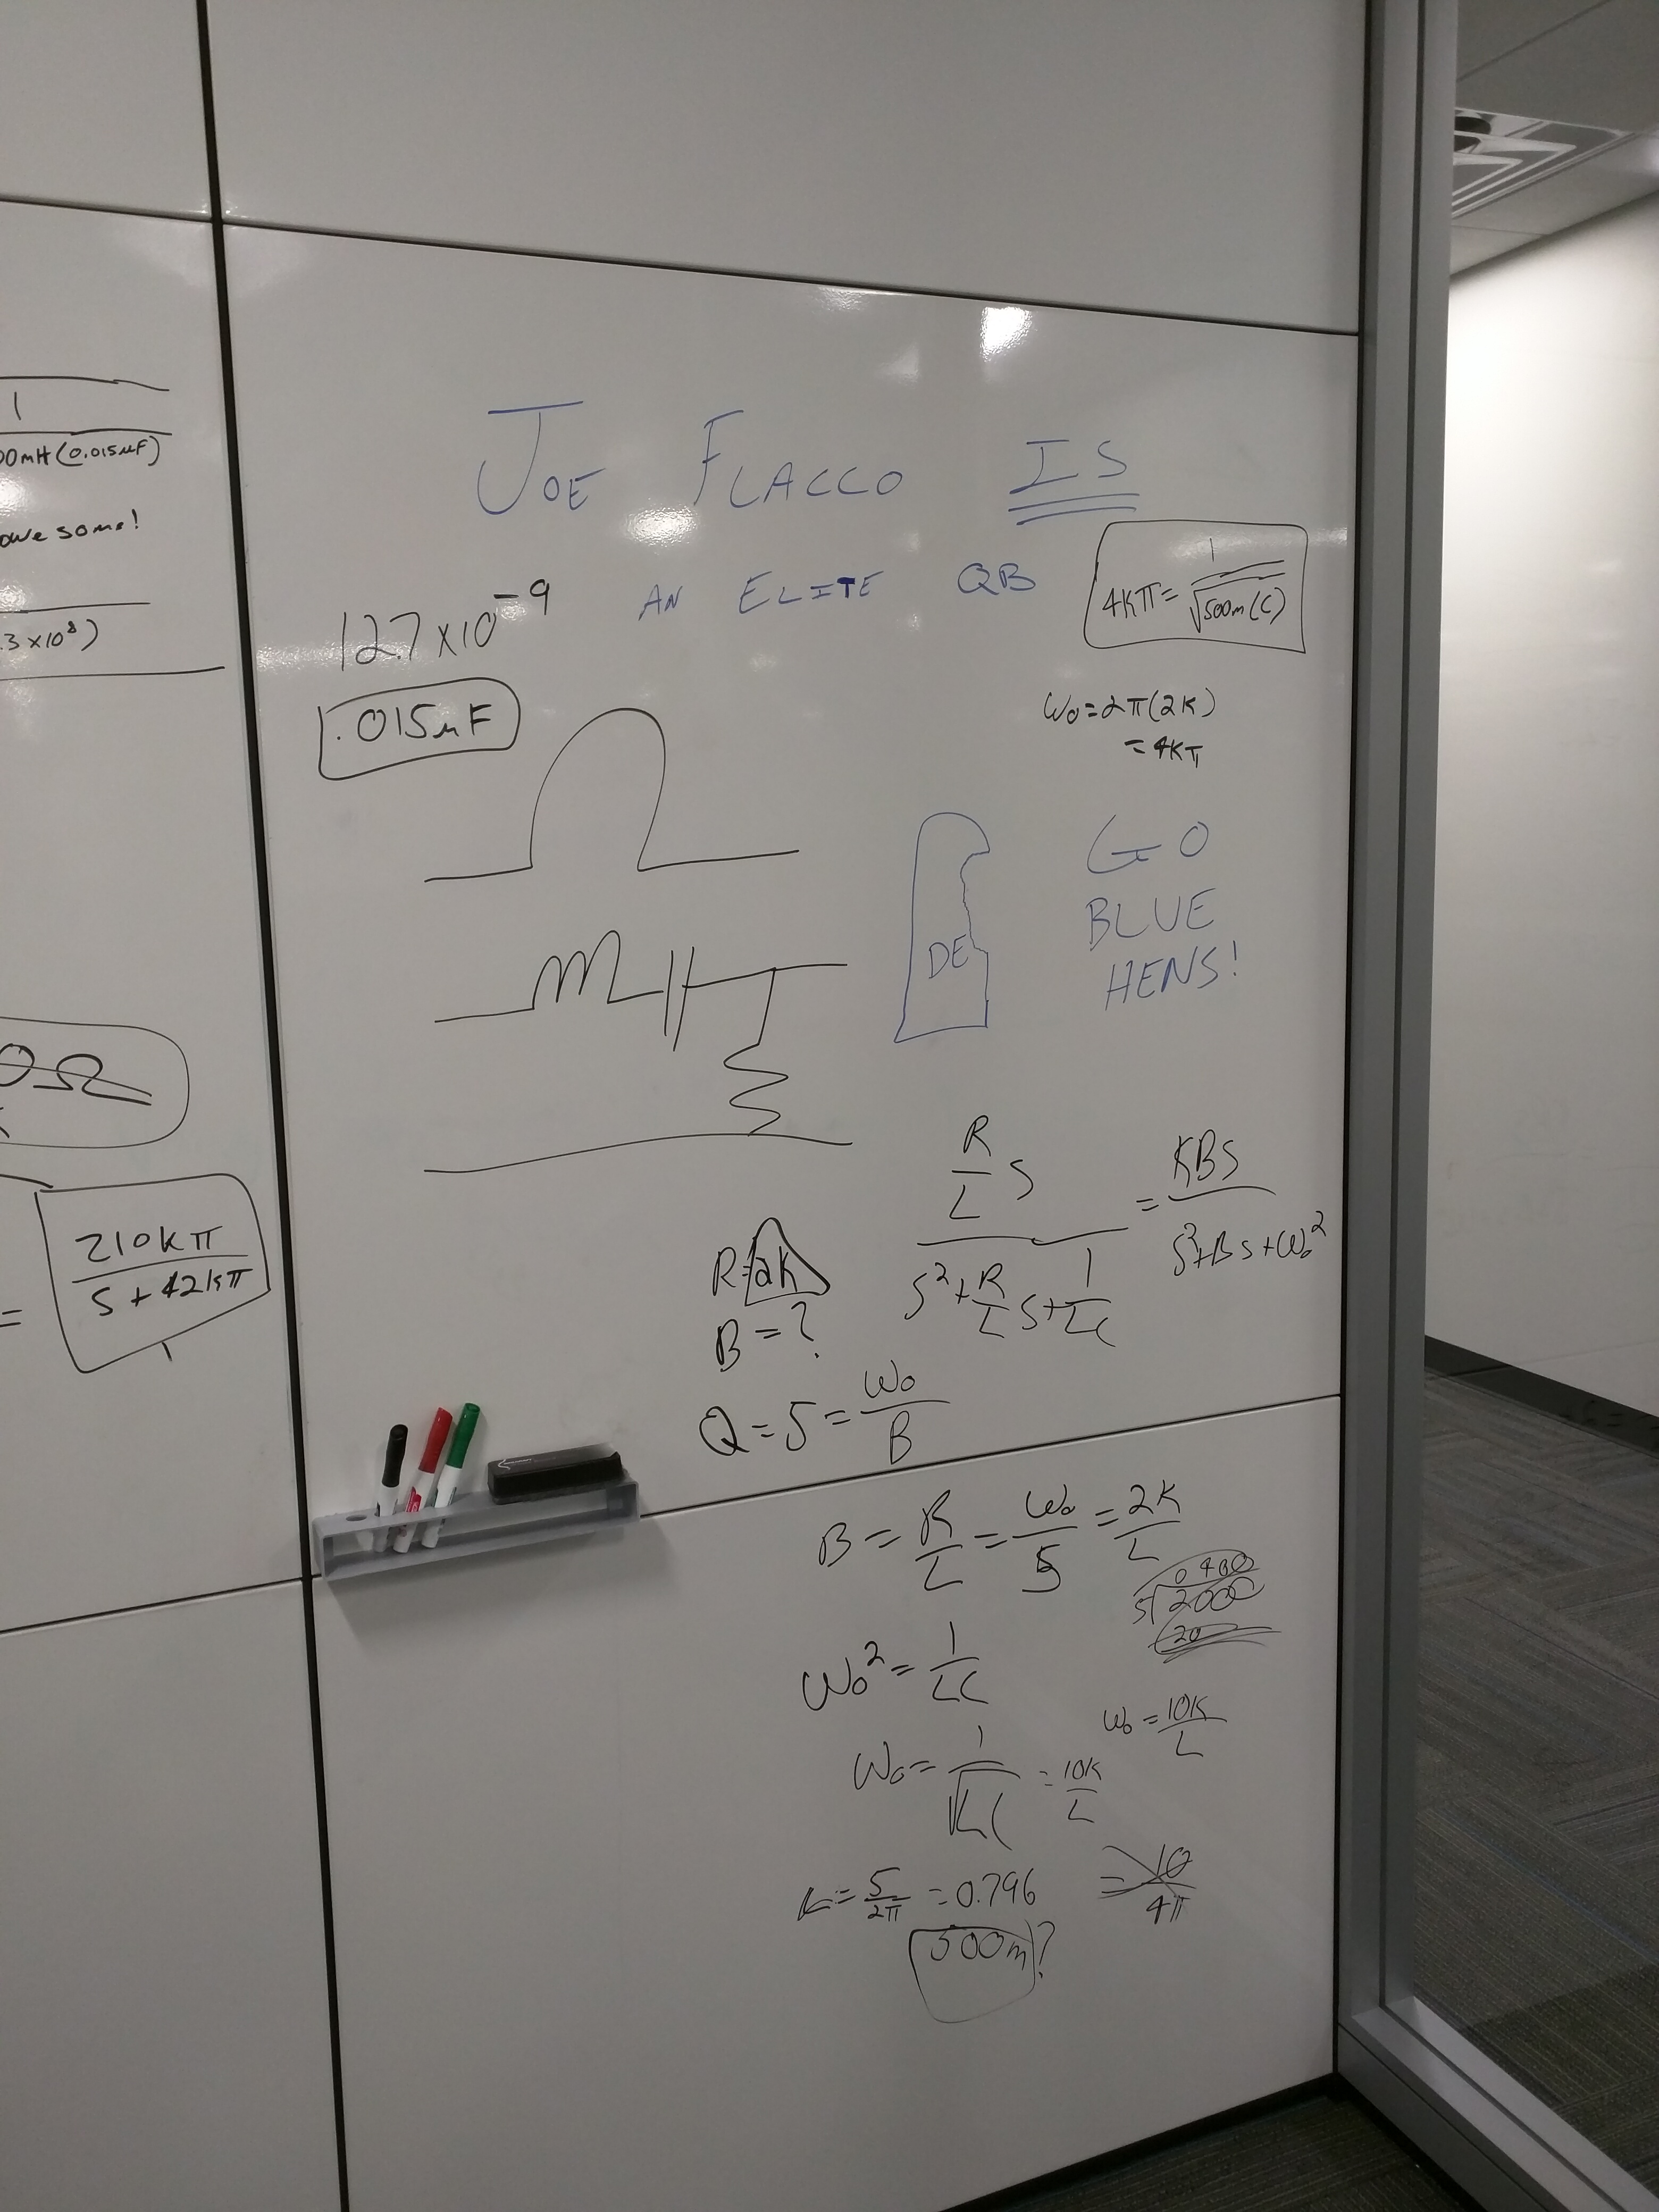 1
00mH(0.015μF)
owe some!
.3 x10⁸)
0Ω
210kπ
s + 42kπ
=
JOE FLACCO IS
AN ELITE QB
12.7 x10⁻⁹
.015μF
4Kπ = 1/√500m(C)
ω₀=2π(2K)
= 4Kπ
DE
GO
BLUE
HENS!
R/L s / s²+R/L s+1/LC = KBs / s²+Bs+ω₀²
R=2k
B=?
Q=5=ω₀/B
B = R/L = ω₀/5 = 2K/L
0400
5 2000
20
ω₀² = 1/LC
ω₀ = 10K/L
ω₀ = 1/√LC = 10K/L
L = 5/2π = 0.796
= 10/4π
500m?